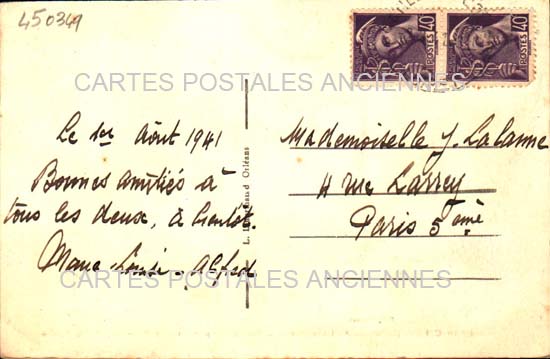 450349
40
40
POSTES
POSTES
CARTES POSTALES ANCIENNES
Le 1er Août 1941
Bonnes amitiés à
tous les deux, à bientôt.
Marie-Louise - Alfred
L. Orléans
Mademoiselle J. Lalanne
4 rue Larrey
Paris 5ème
CARTES POSTALES ANCIENNES